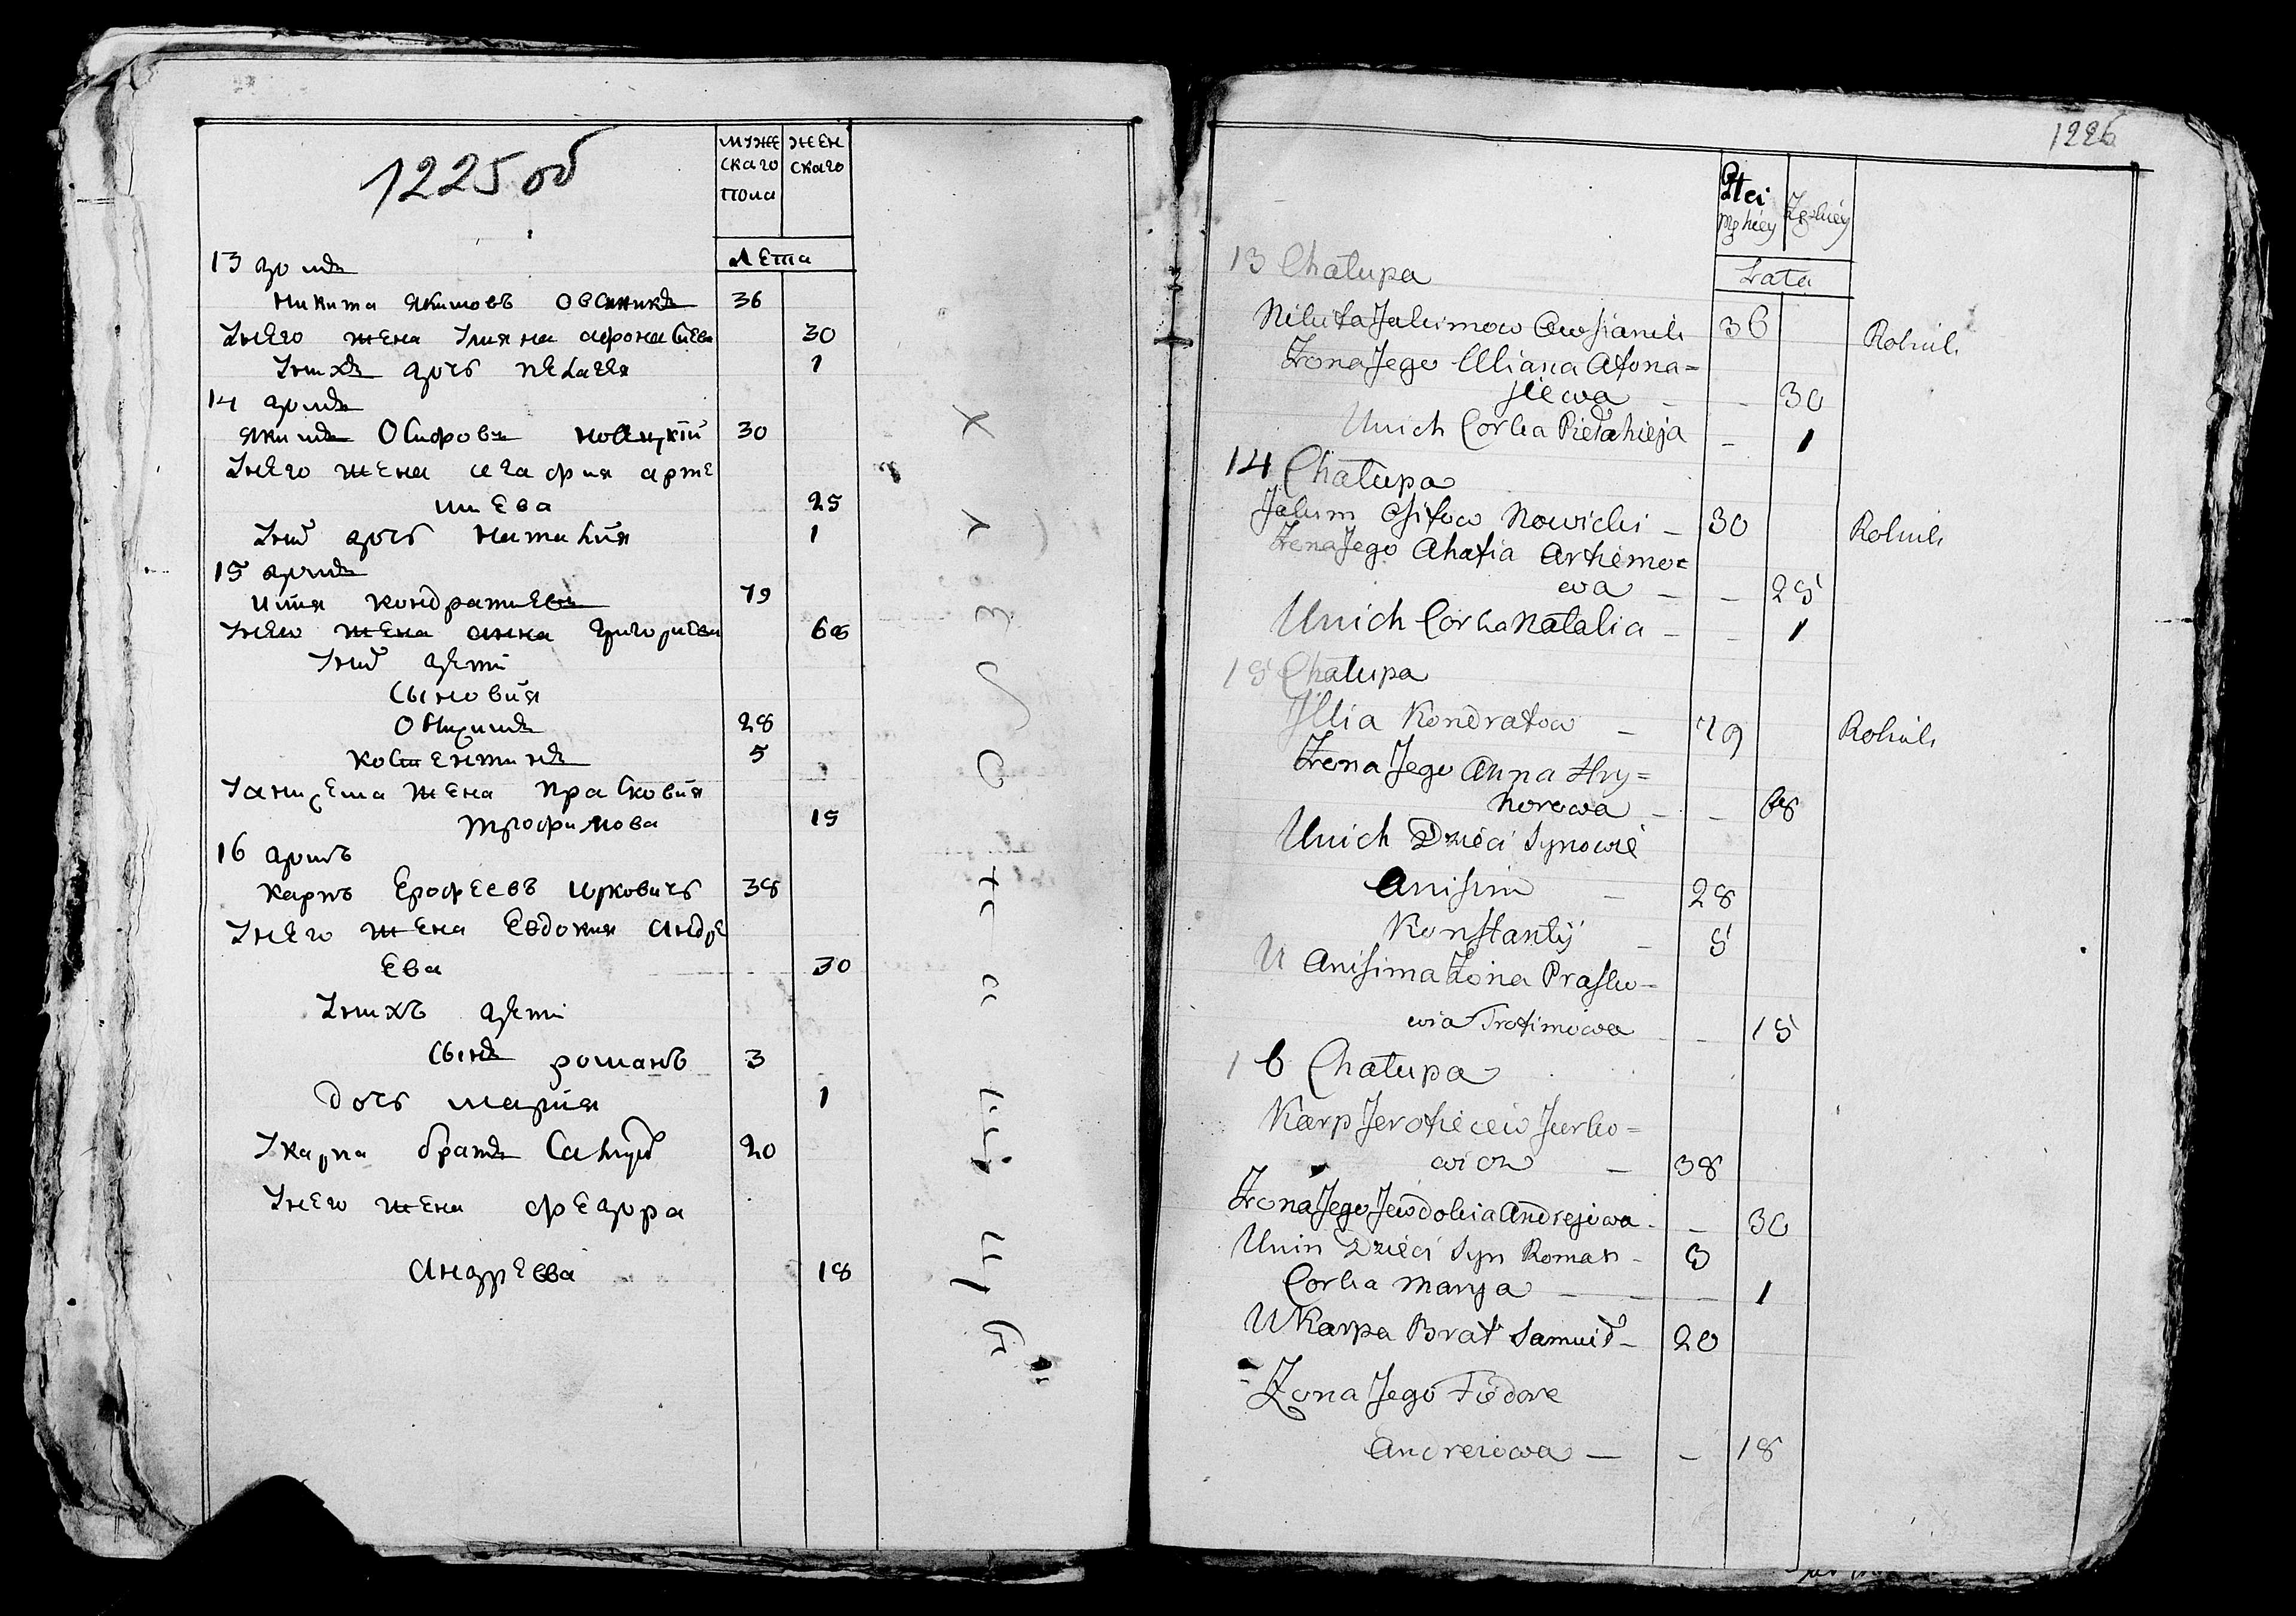 1225 об
муже
скаго
пола
жен
скаго
Лета
13 домъ
Никита Якимовъ Овсяникъ 36
Унего жена Улияна афонасиева 30
Унихъ дочь пелагея 1
14 домъ
Якимъ Осифовъ новицкiй 30
Унего жена агафия арте
миева 25
Унихъ дочь наталiя 1
15 домъ
илия кондратиевъ 79
Унего жена анна григориева 68
Унихъ дети
Сыновiя
Онисимъ 28
костентинъ 5
Уанисима жена прасковия
трофимова 15
16 домъ
карпъ Ерофеевъ юркович 38
Унего жена Евдокия андре
ева 30
Унихъ дети
Сынъ романъ 3
дочь марiя 1
Укарпа братъ Самуил 20
Унего жена федора
андреева 18
1226
Płci
Męzkiey
Zęzkiey
Lata
13 Chałupa
Nikita Jakimow Awsianik 36 Rolnik
Żona Jego Uliana Afona=
siewa - - 30
Unich Corka Pielahieja - 1
14 Chałupa
Jakim Osifow Nowicki - 30 Rolnik
Żona Jego Ahafia Artiemo=
wa - - 25
Unich Corka Natalia - - 1
15 Chałupa
Jllia Kondratow - 79 Rolnik
Żona Jego Anna Hry=
horowa - - 68
Unich Dzieci Synowie
Anisim - 28
Konstanty - 5
U Anisima Żona Prasko=
wia Trofimowa - - 15
16 Chałupa
Karp Jerofieiew Jurko=
wicz - 38
Żona Jego Jewdokia Andrejewa - - 30
Unin Dzieci Syn Roman - 3
Corka Marya - - - 1
U Karpa Brat Samuił - 20
Żona Jego Fiedora
Andreiewa - - 18